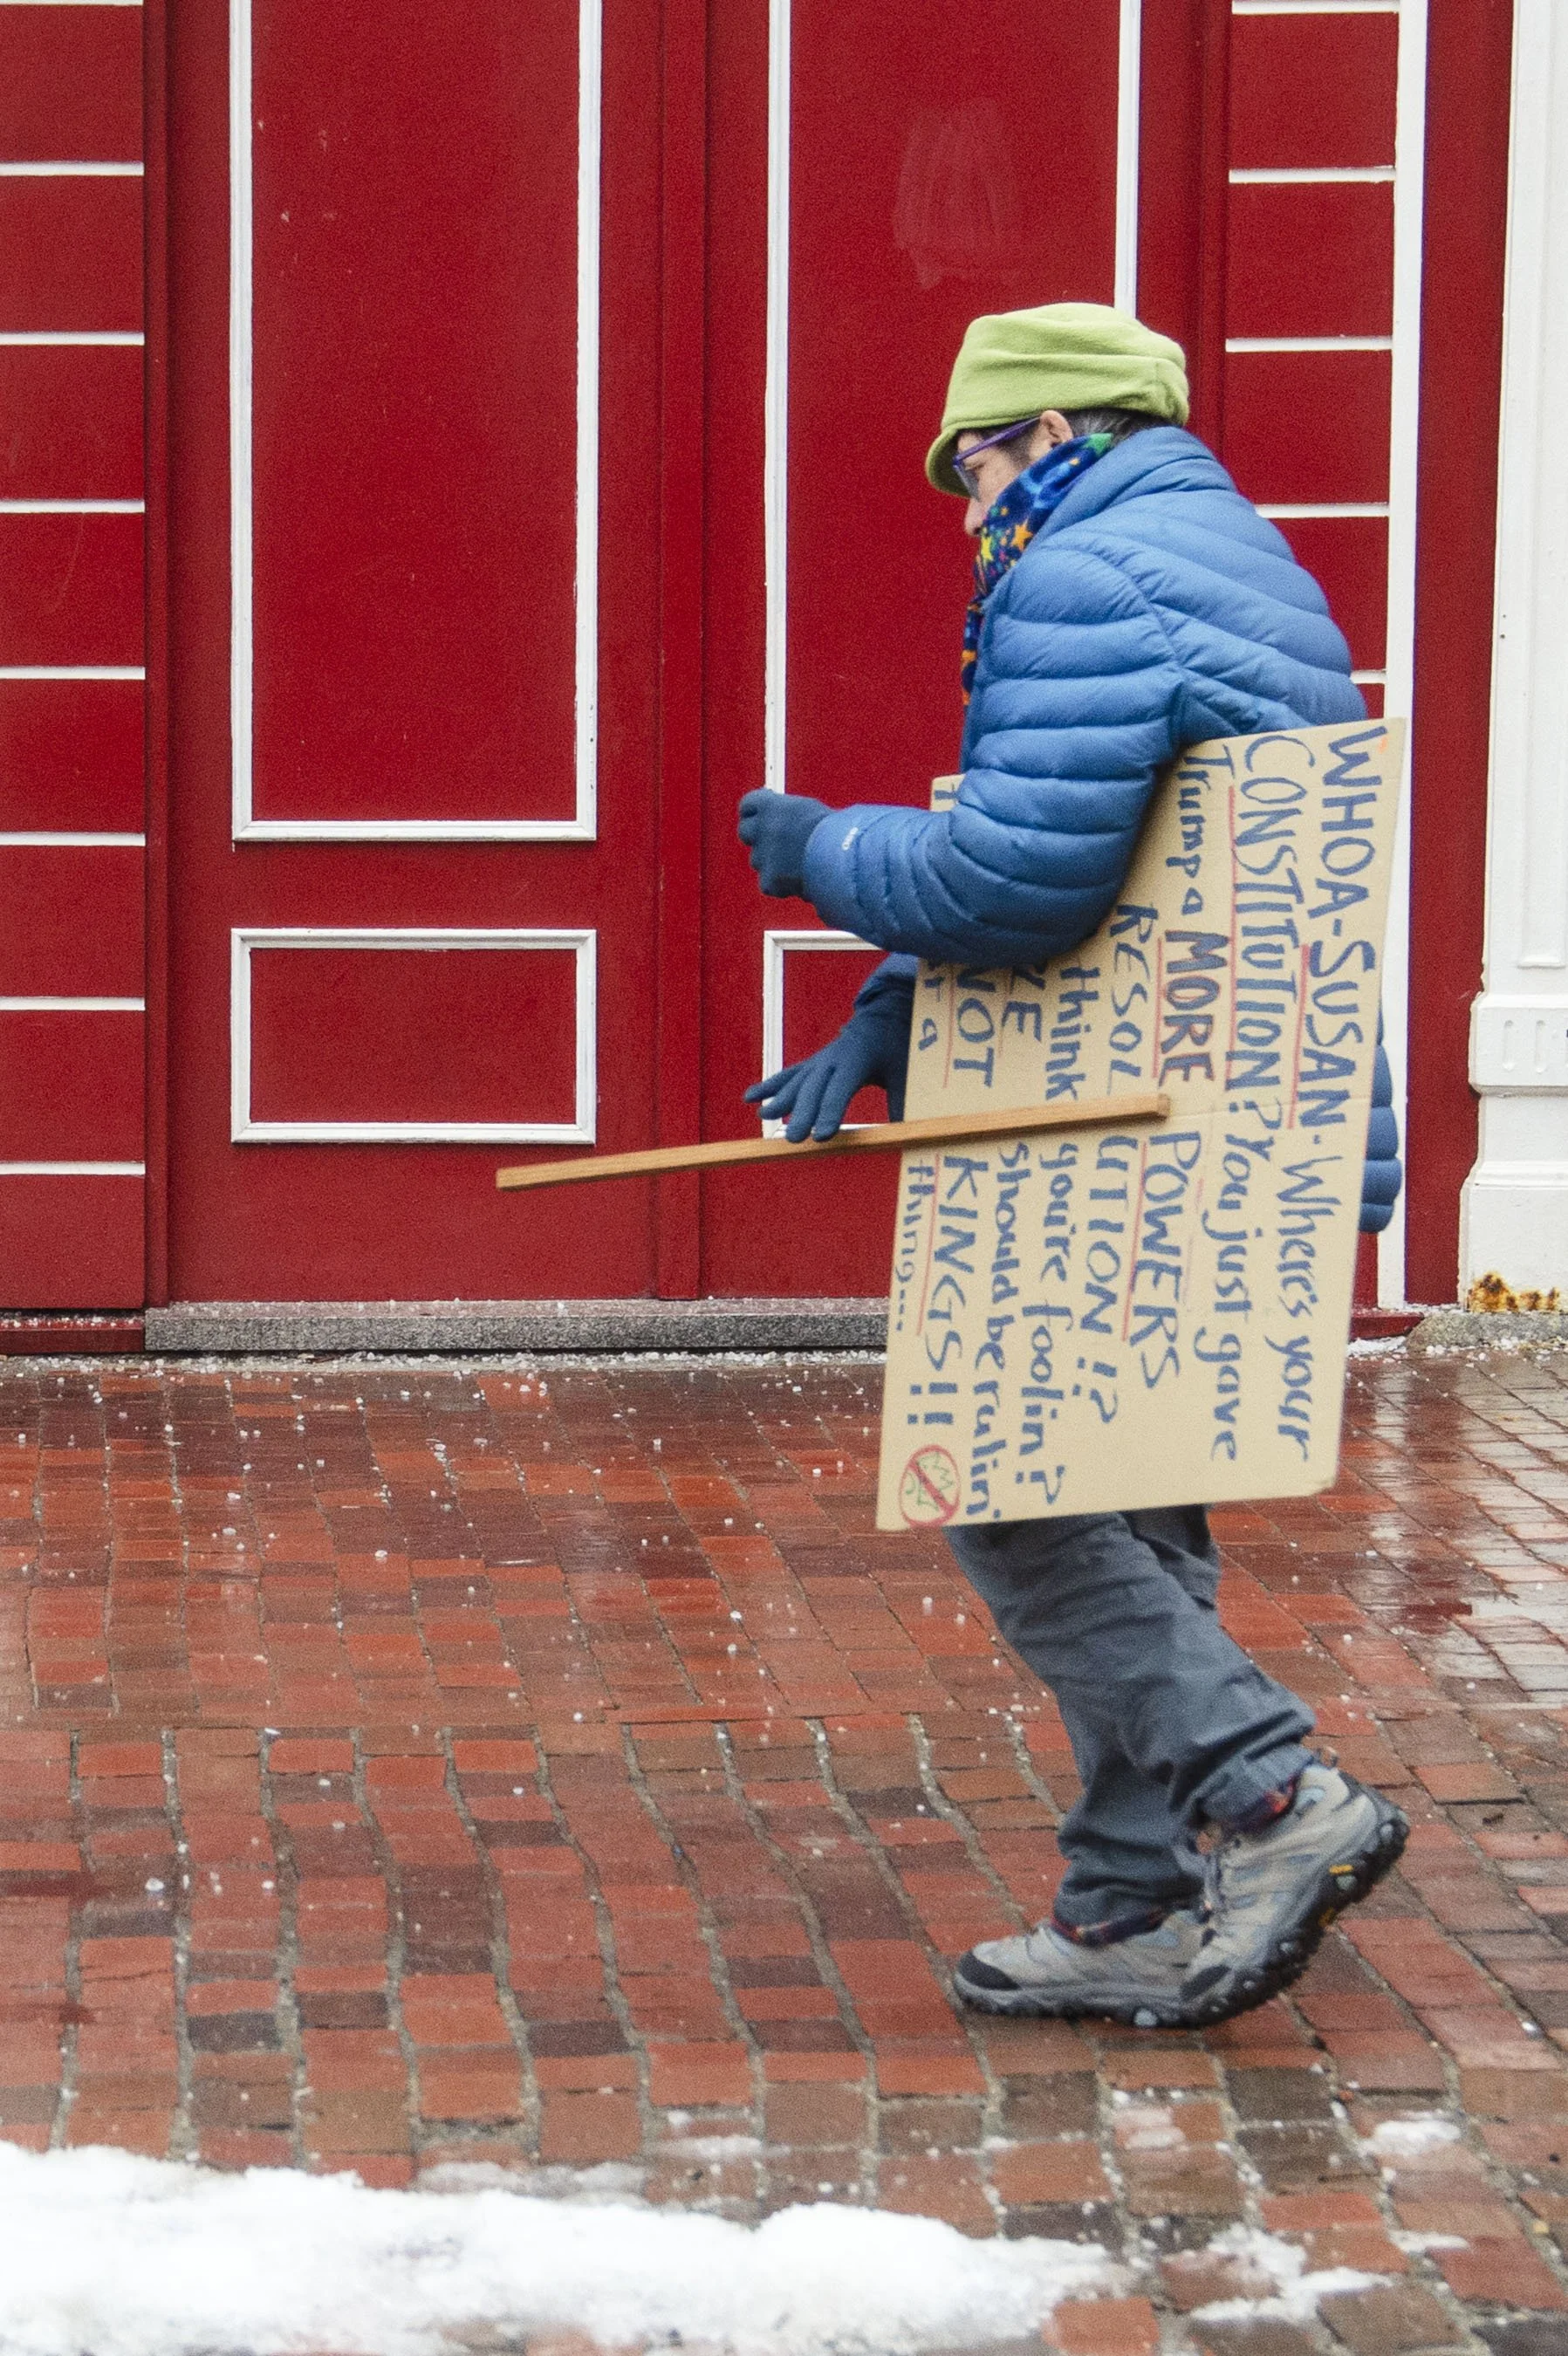 WHOA-SUSAN. Where's your
CONSTITUTION? You just gave
Trump a MORE POWERS
RESOLUTION!?
think you're foolin?
should be rulin'
NOT KINGS!!
a thing....